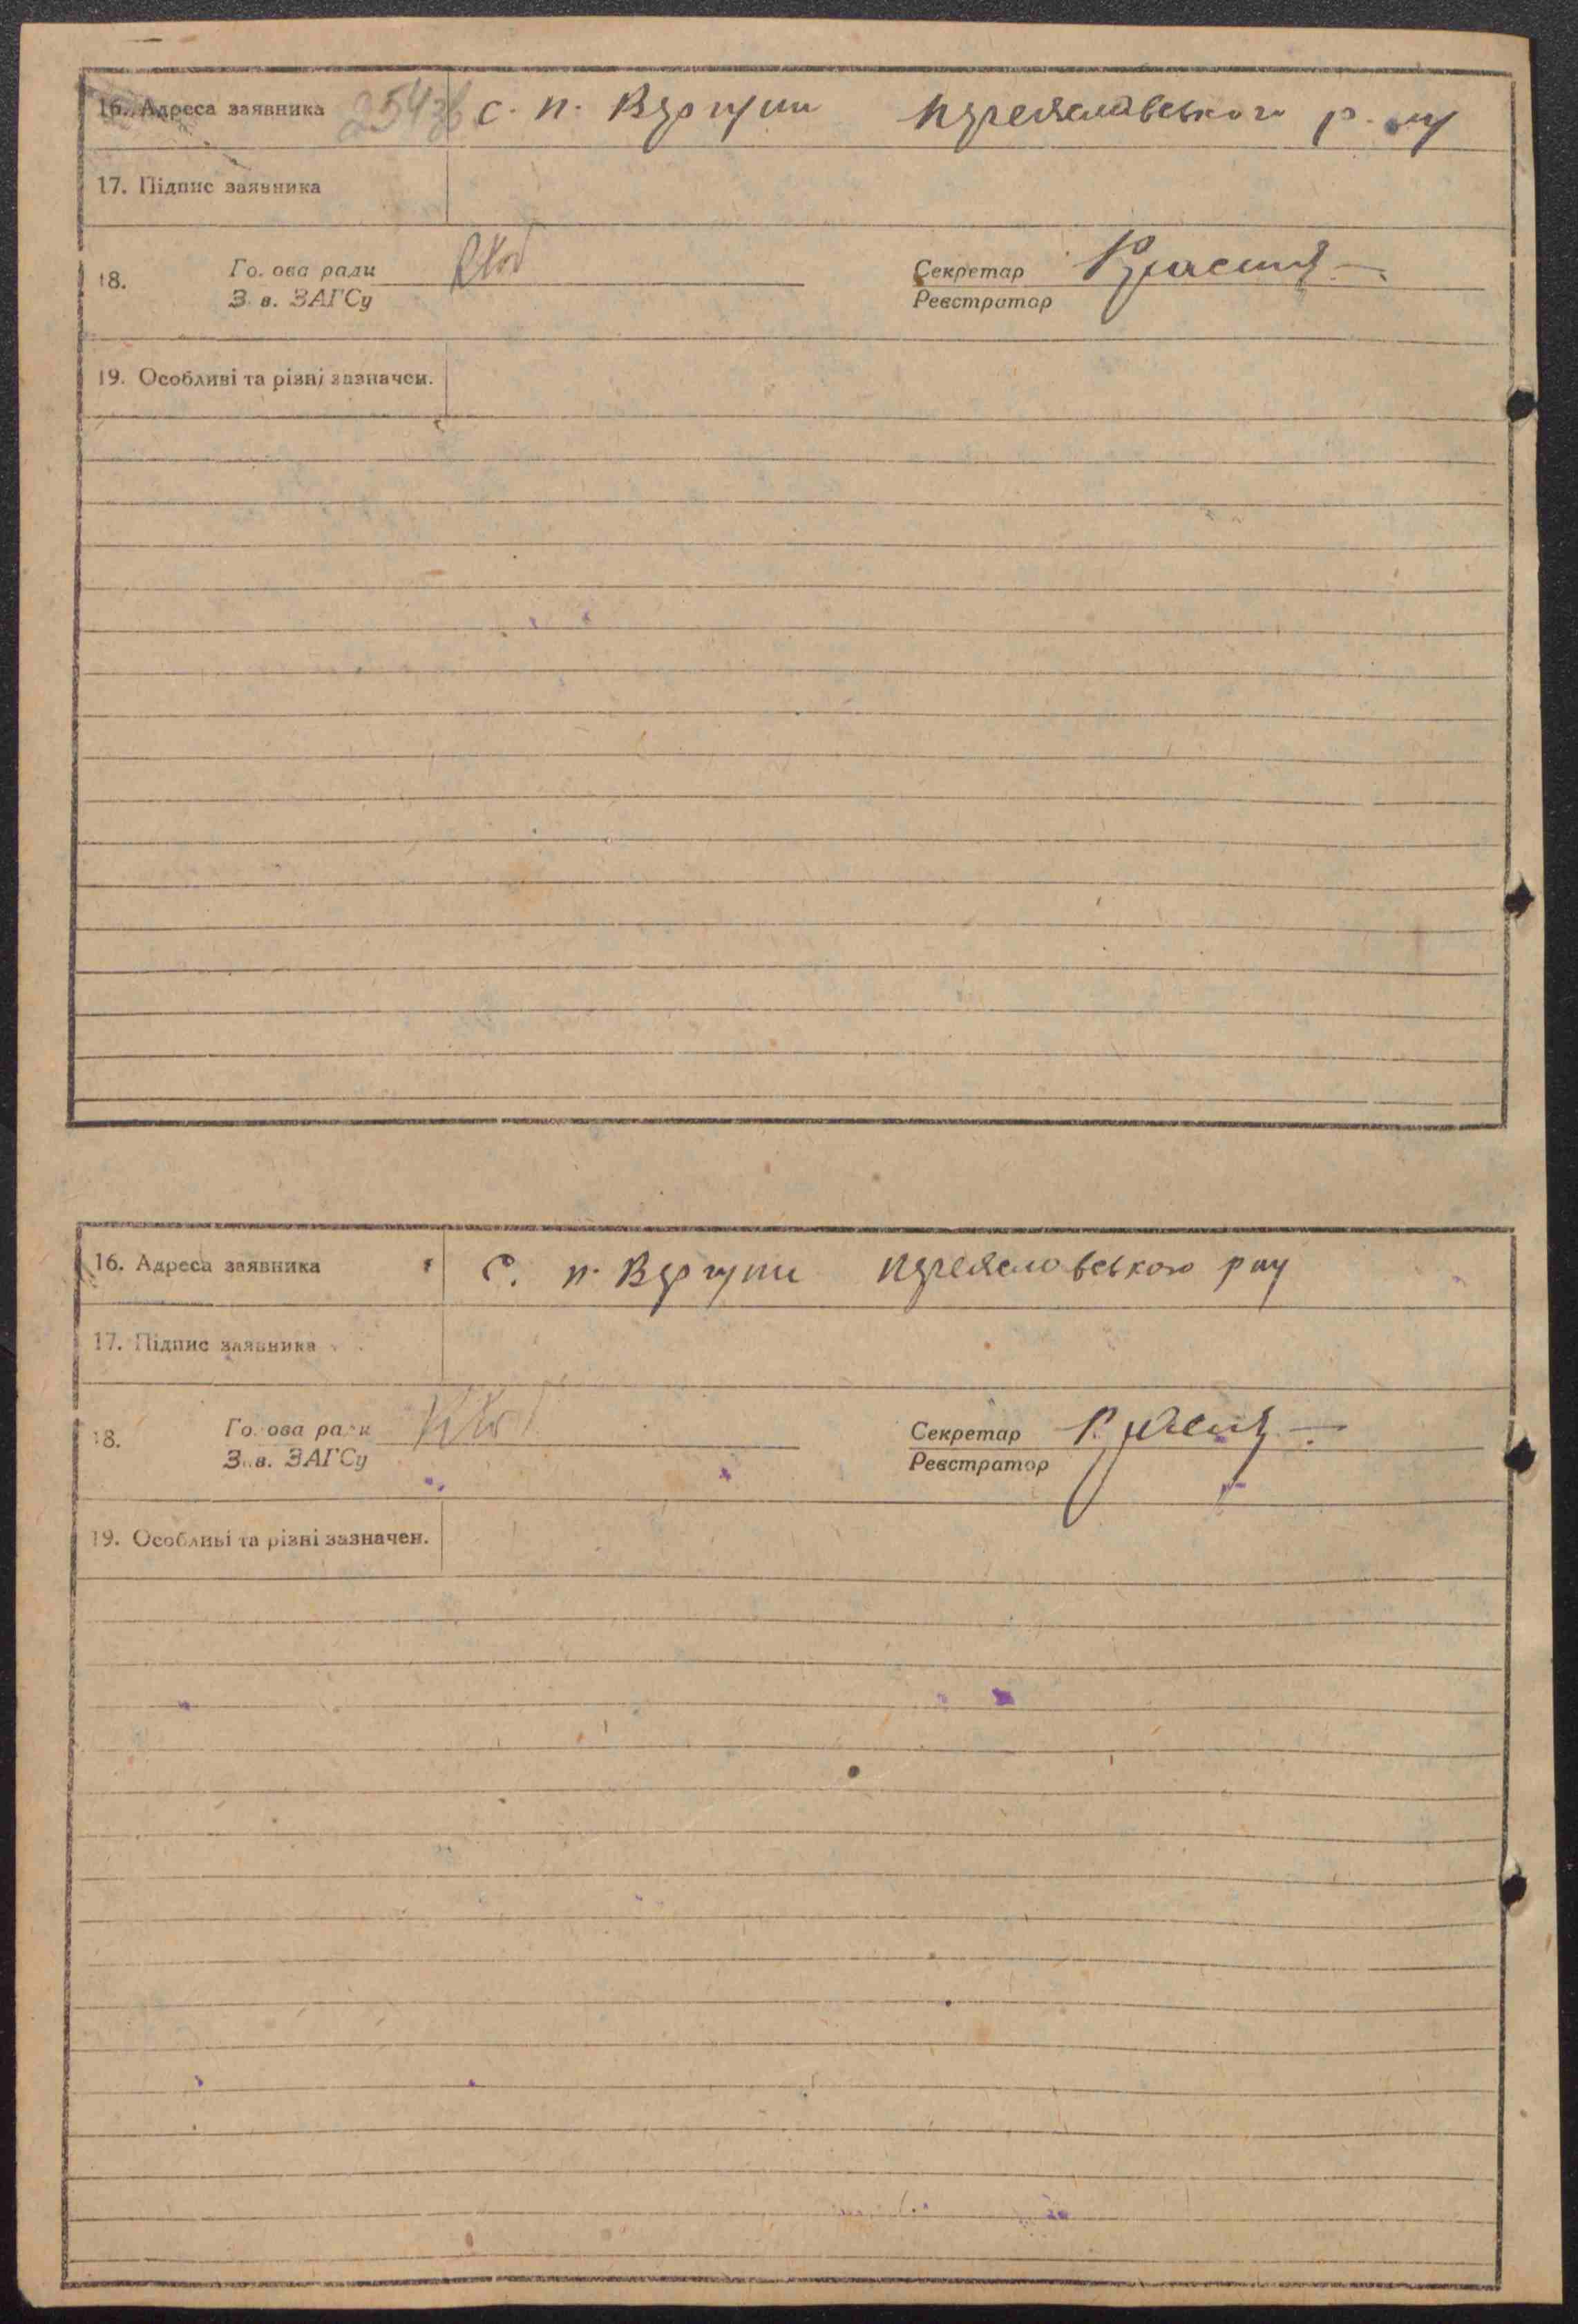 16. Адреса заявника 254зв с. п. Вергуни переяславського р. ну
17. Підпис заявника
18. Голова ради Секретар
Зав. ЗАГСу Реєстратор
19. Особливі та різні зазначен.
16. Адреса заявника с. п. Вергуни переяславського рну
17. Підпис заявника
18. Голова ради Секретар
Зав. ЗАГСу Реєстратор
19. Особливі та різні зазначен.